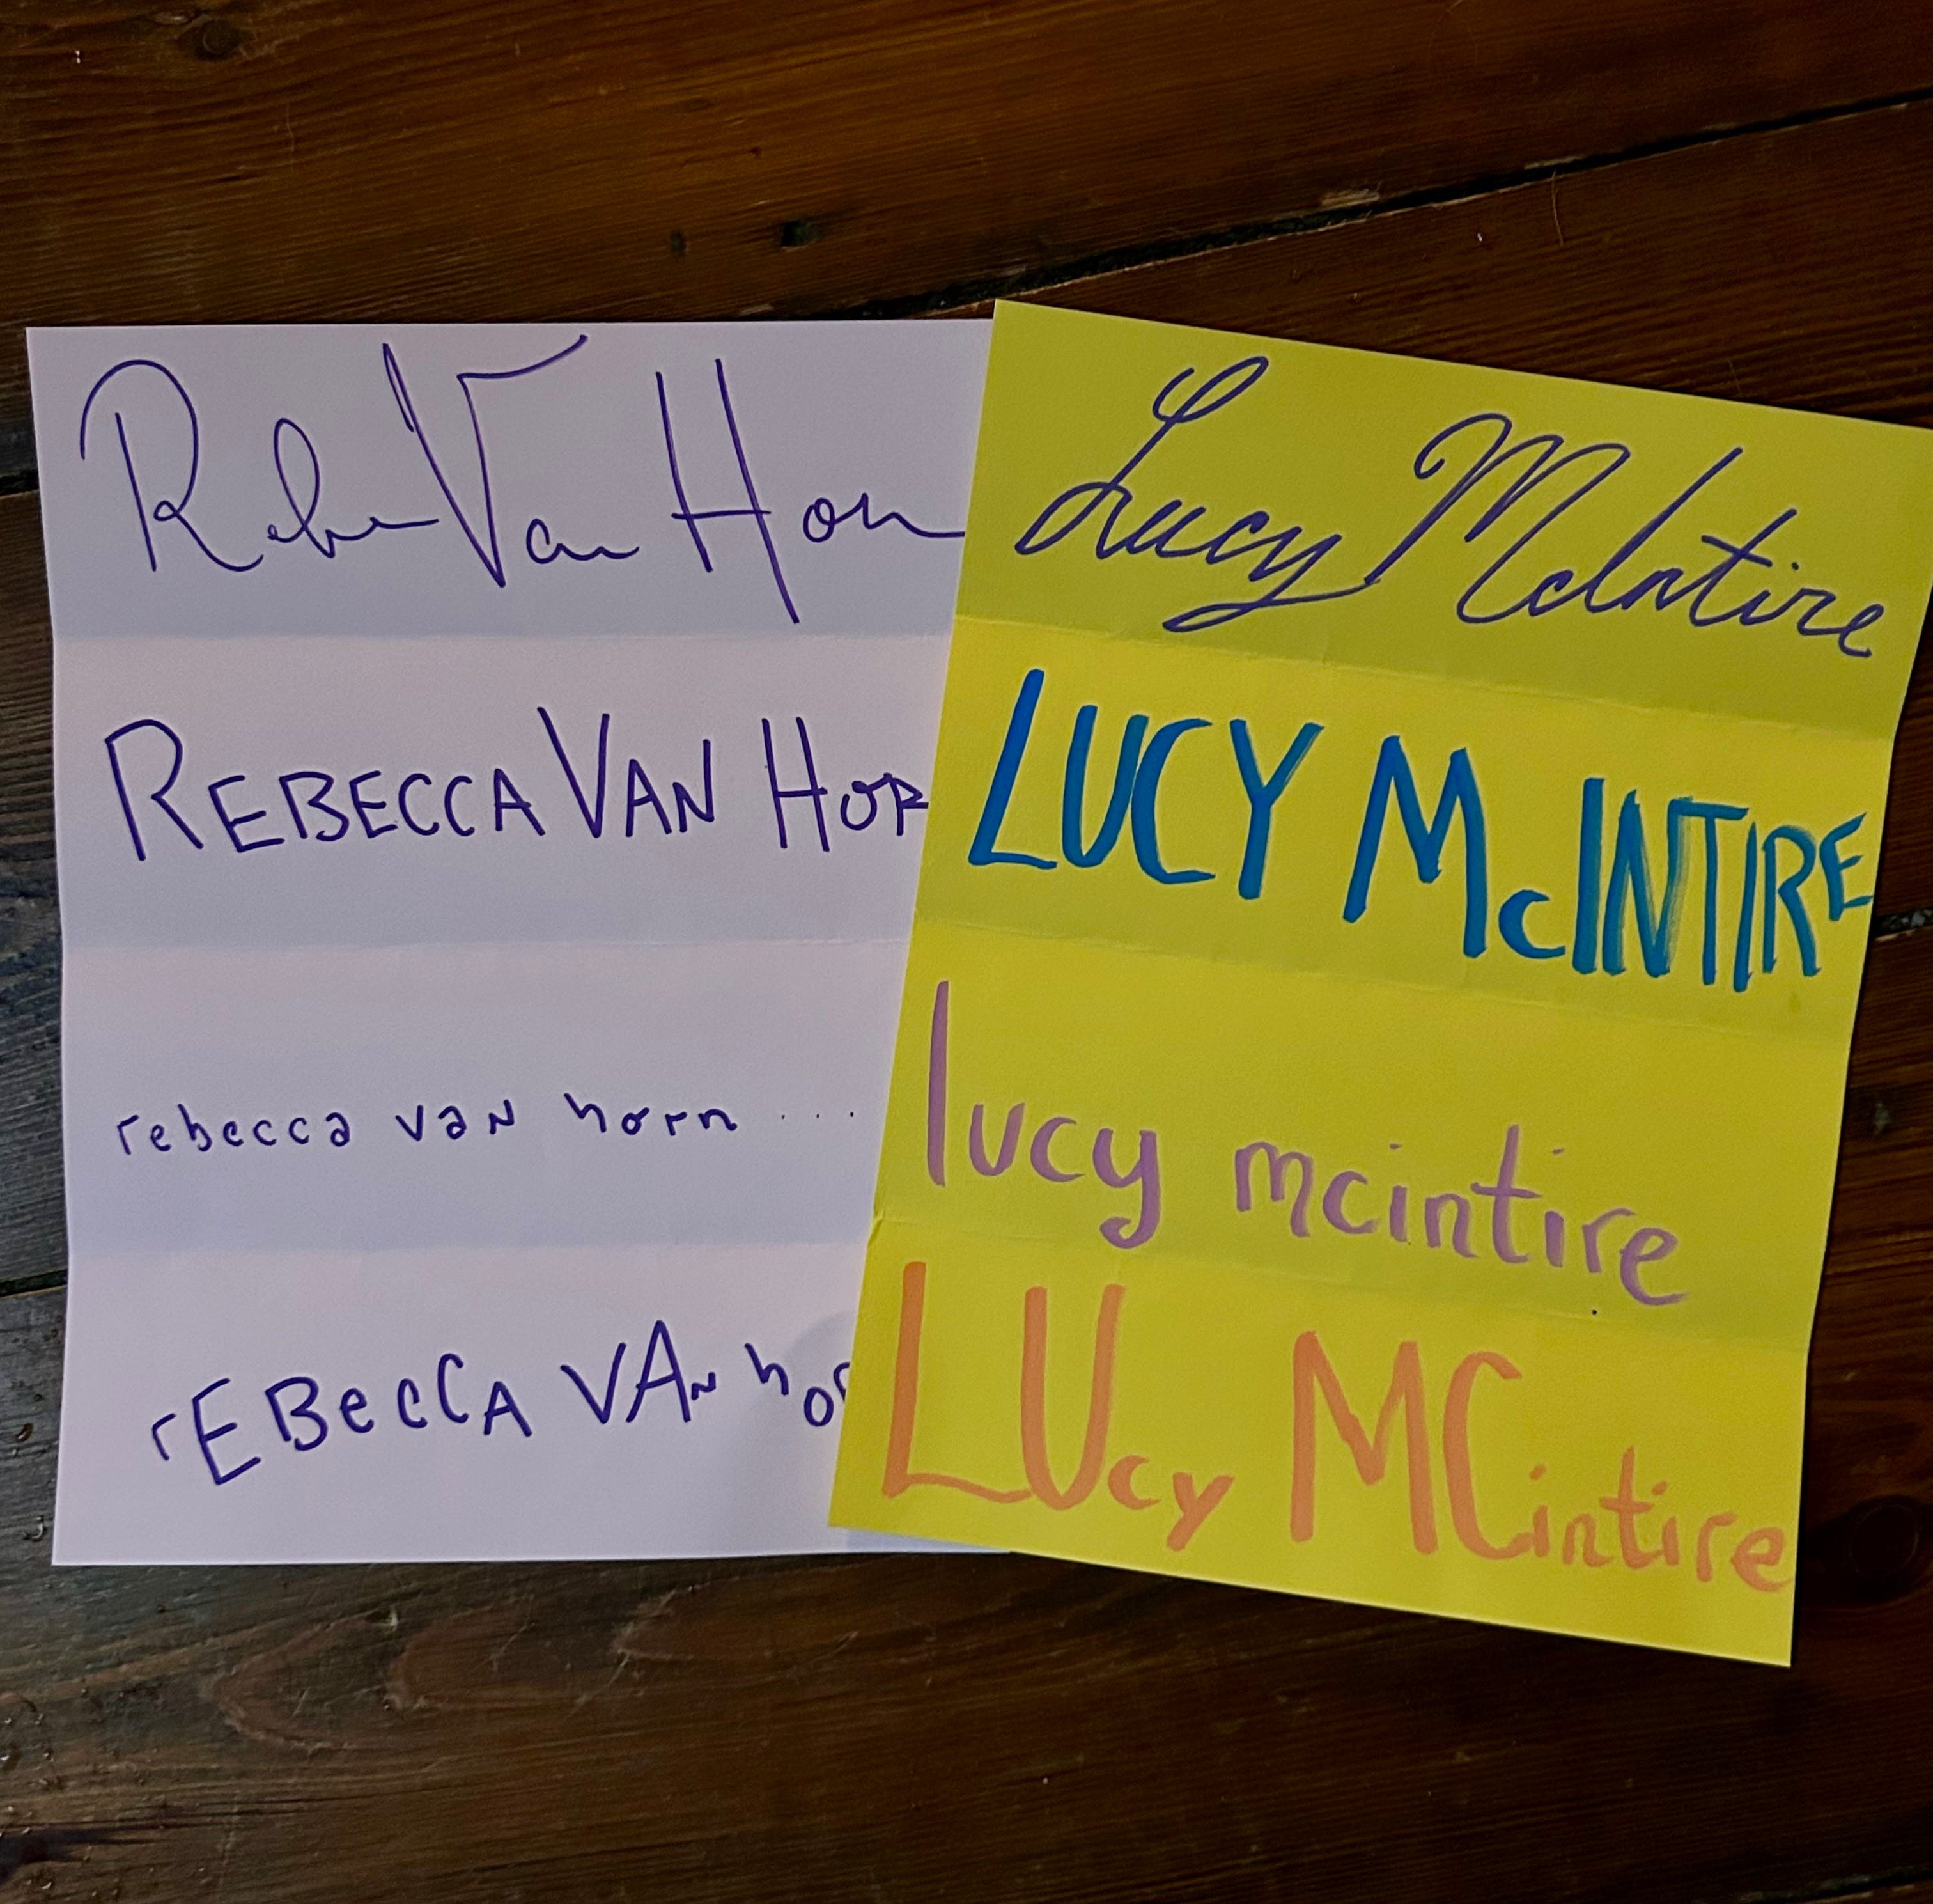 Rebe Van Horn
REBECCA VAN HOR
rebecca vaN horn ...
rEBecCA VAn hor
Lucy McIntire
LUCY McINTIRE
lucy mcintire
LUcy MCintire